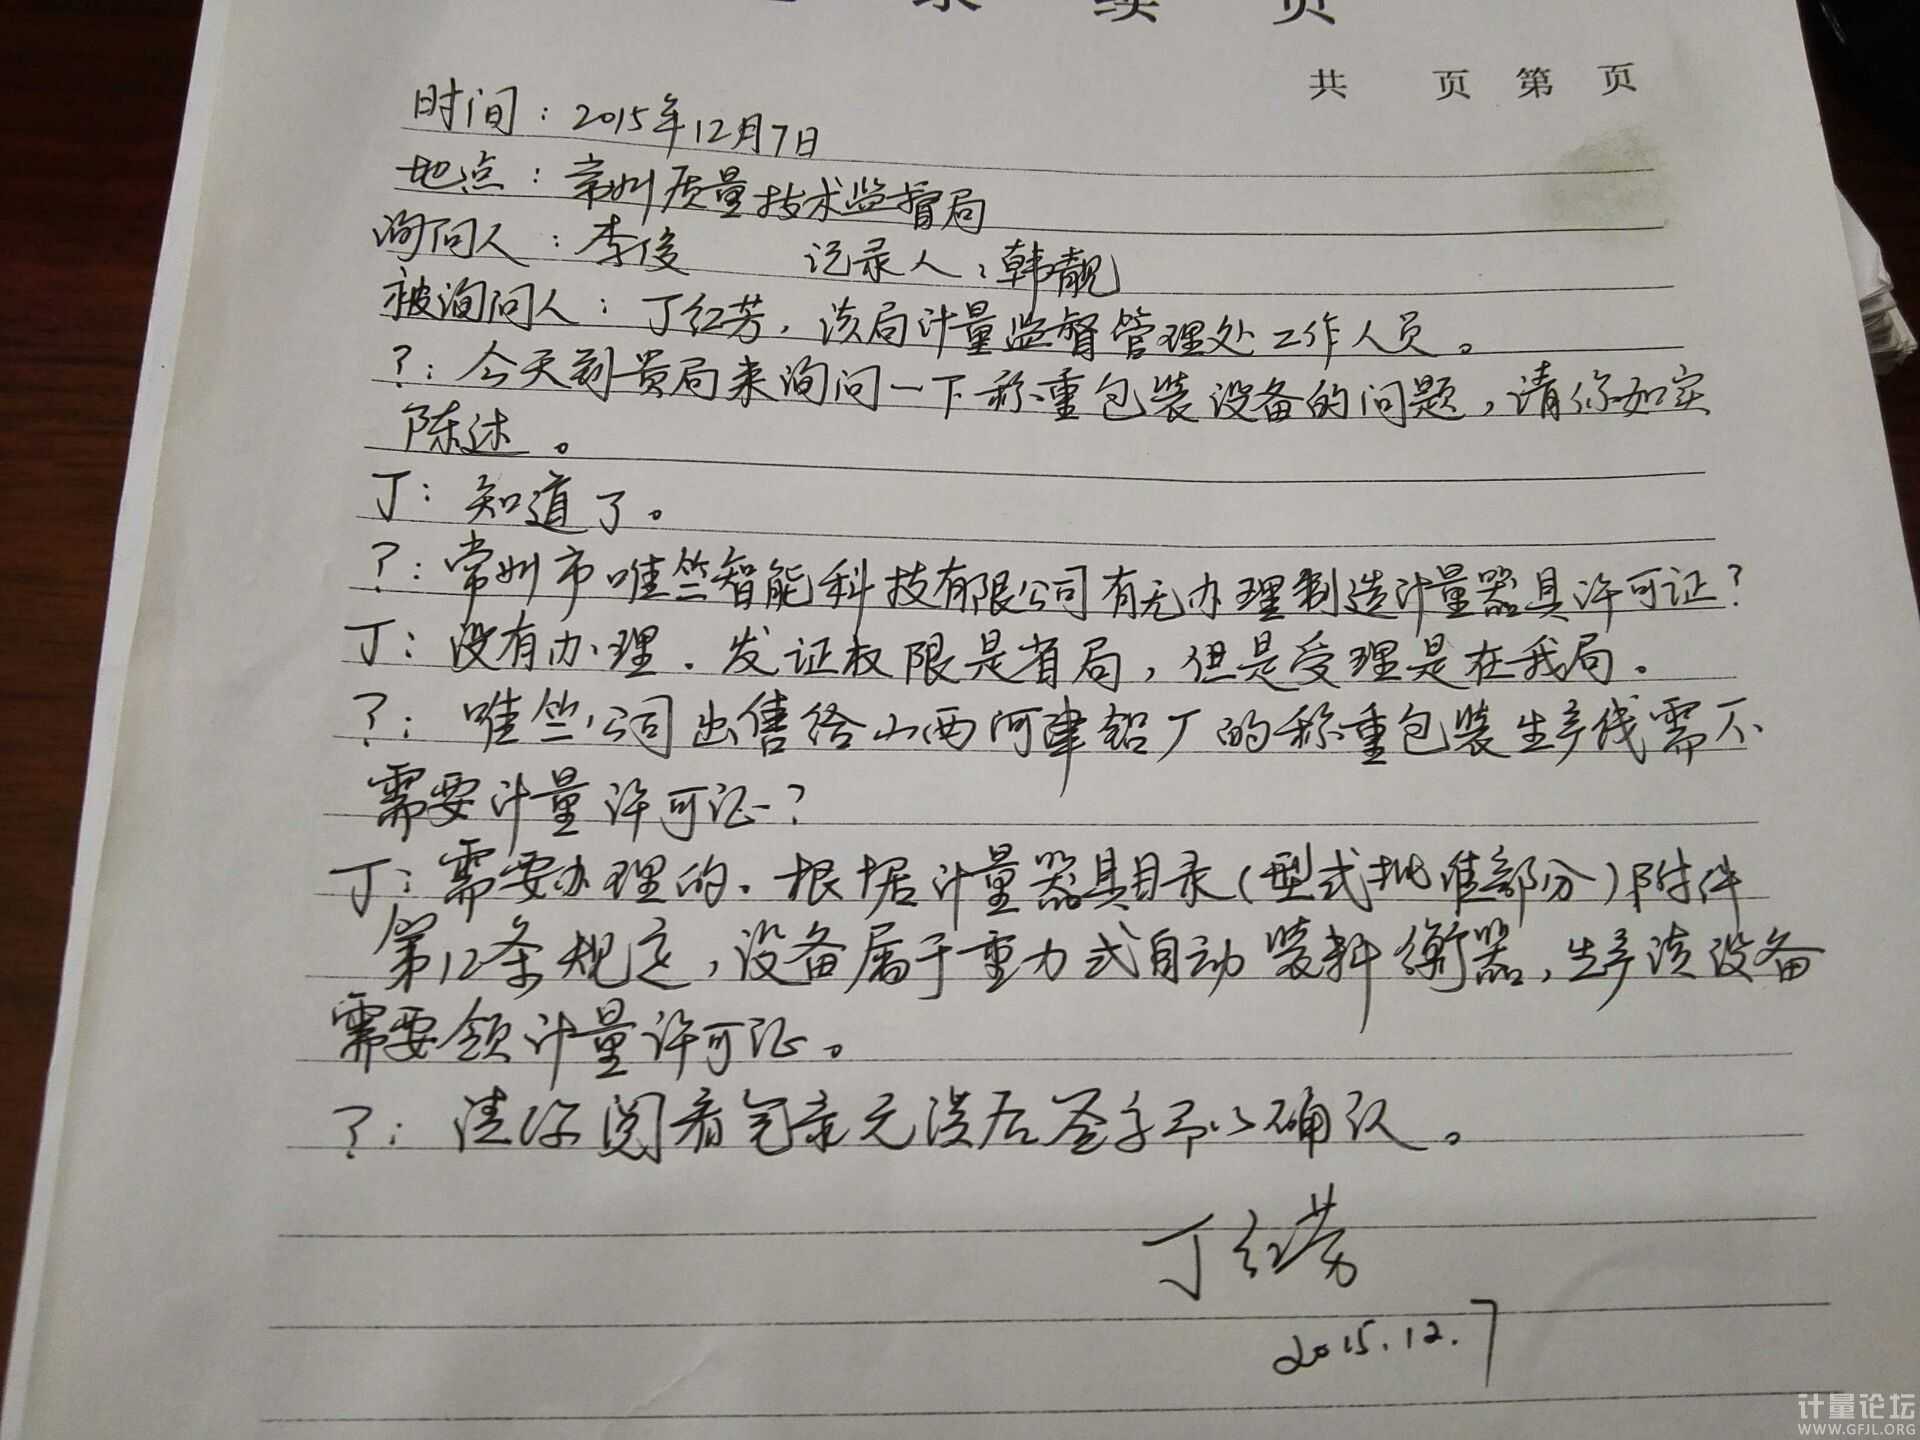 录 续 页
共 页 第 页
时间：2015年12月7日
地点：常州质量技术监督局
询问人：李俊 记录人：韩靓
被询问人：丁红芳，该局计量监督管理处工作人员。
？：今天到贵局来询问一下称重包装设备的问题，请你如实
陈述。
丁：知道了。
？：常州市唯竺智能科技有限公司有无办理制造计量器具许可证？
丁：没有办理．发证权限是省局，但是受理是在我局．
？：唯竺公司出售给山西河津铝厂的称重包装生产线需不
需要计量许可证？
丁：需要办理的．根据计量器具目录（型式批准部分）附件
第12条规定，设备属于重力式自动装料衡器，生产该设备
需要领计量许可证。
？：请你阅看笔录无误后签字予以确认。
丁红芳
2015.12.7
计量论坛
WWW.GFJL.ORG